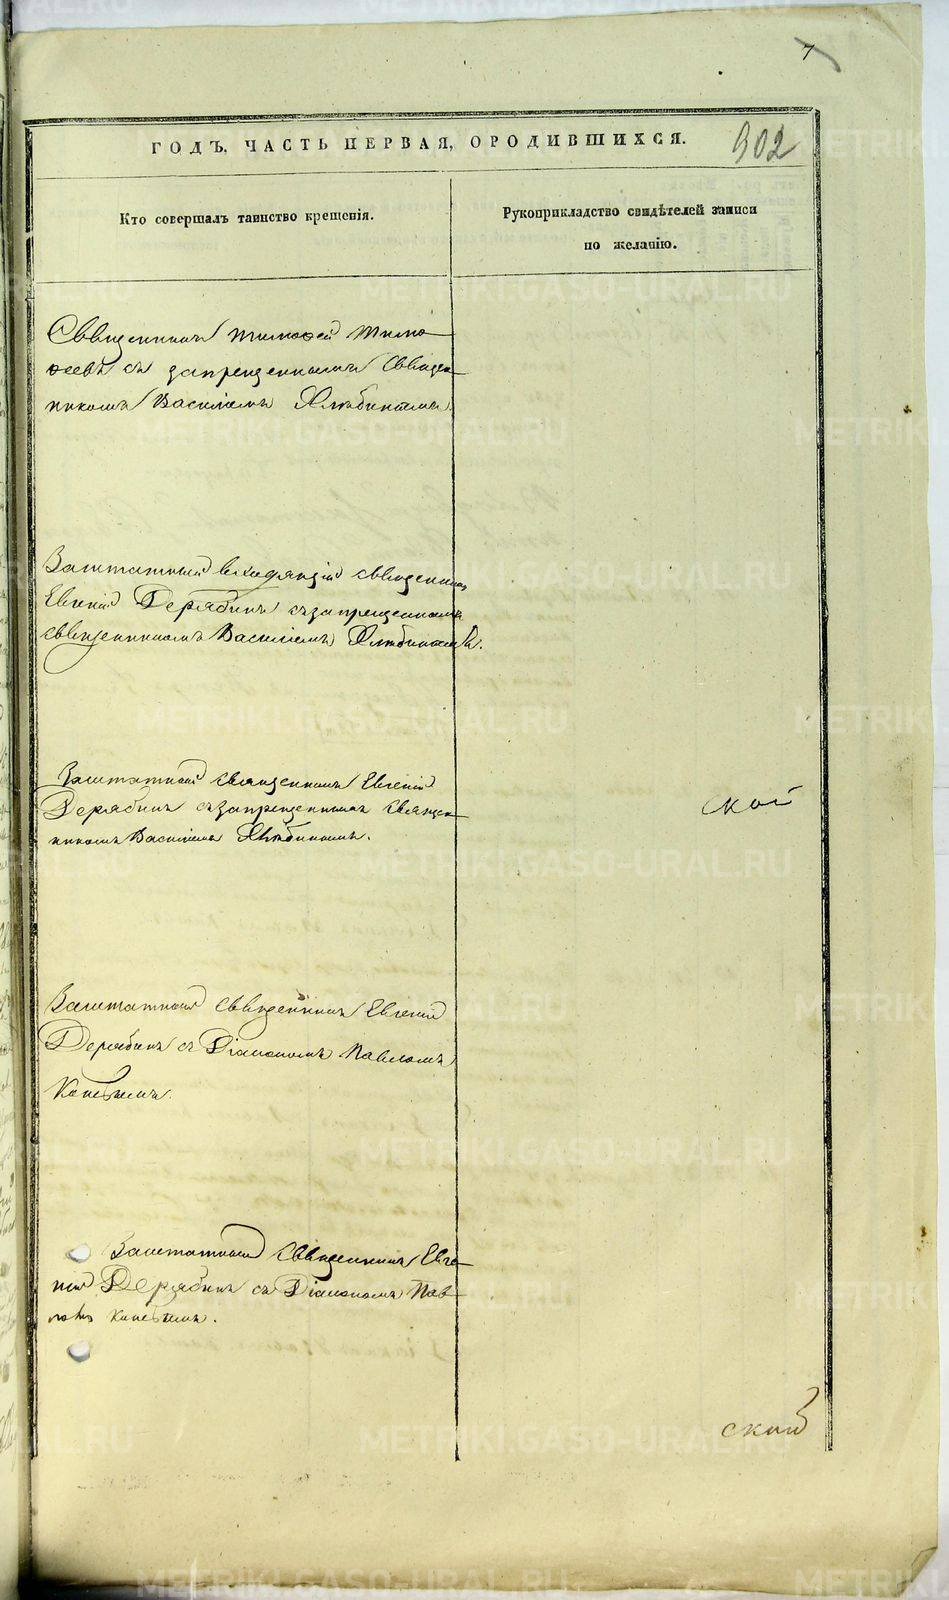 7
ГОДЪ, ЧАСТЬ ПЕРВАЯ, О РОДИВШИХСЯ.
902
Кто совершалъ таинство крещенія.
Рукоприкладство свидѣтелей записи
по желанію.
Священникъ Тимоѳей Тимо-
ѳеевъ съ запрещеннымъ Священ-
никомъ Василіемъ
Заштатный священникъ
Евгеній Дерябинъ съ запрещеннымъ
священникомъ Василіемъ
Заштатный священникъ Евгеній
Дерябинъ съ запрещеннымъ священ-
никомъ Василіемъ
ской
Заштатный Священникъ Евгеній
Дерябинъ съ Діакономъ Павломъ
Заштатный Священникъ Евге-
ній Дерябинъ съ Діакономъ Пав-
ломъ
ской
METRIKI.GASO-URAL.RU